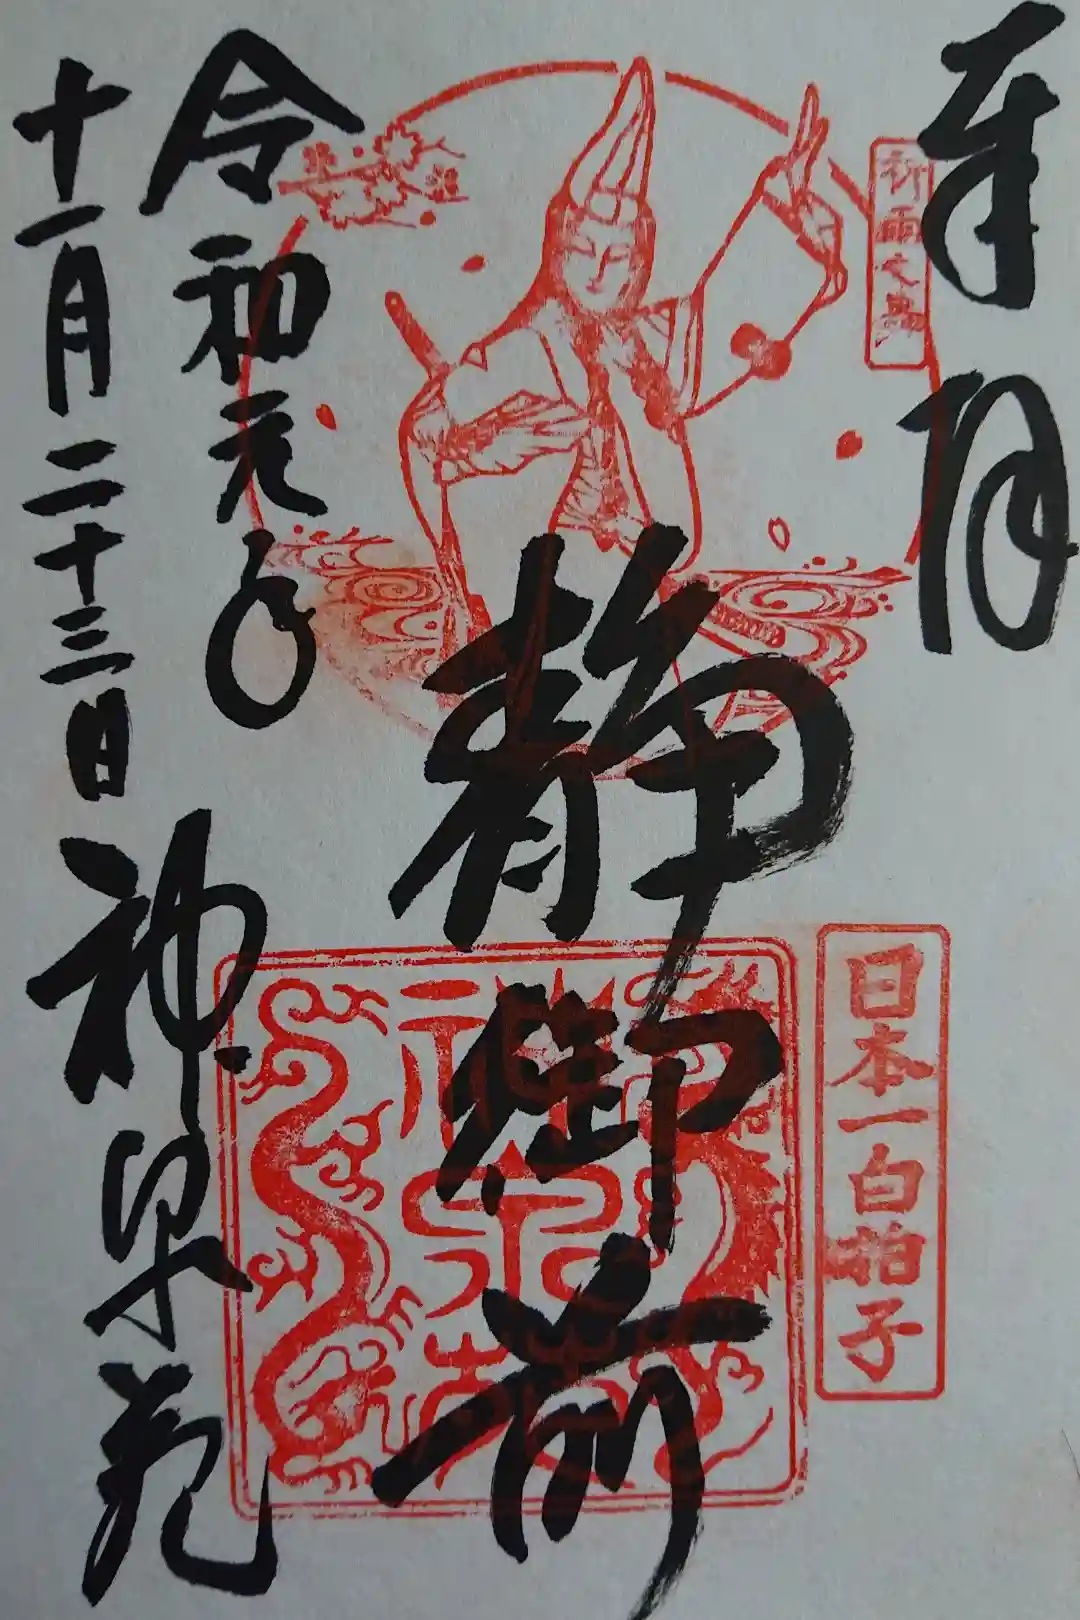 拝
祈雨之舞
静御前
日本一白拍子
神泉苑
令和元年
十一月二十三日
神泉苑